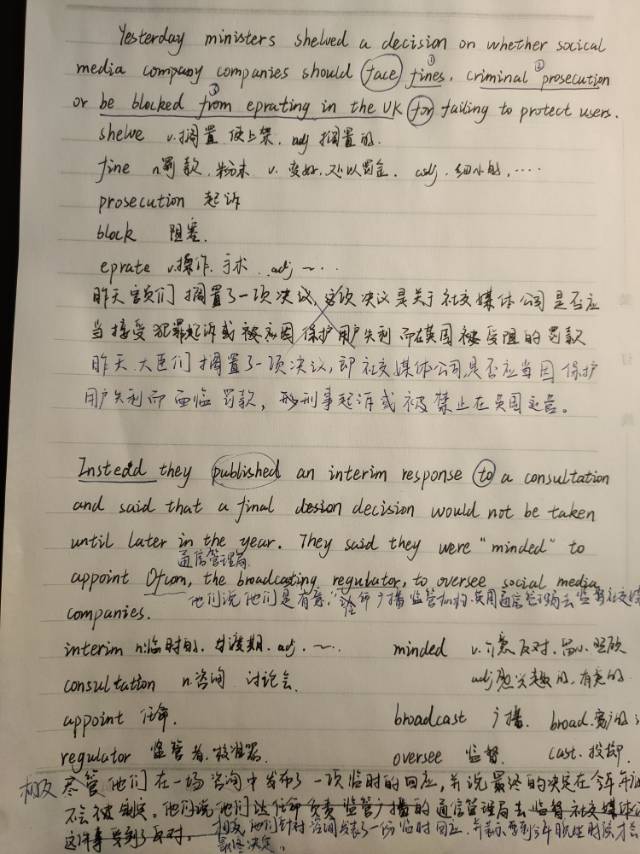 Yesterday ministers shelved a decision on whether socical
media company companies should face ① fines, criminal ② prosecution
or be blocked ③ from eprating in the UK for failing to protect users.
shelve v.搁置 使上架. adj 搁置的.
fine n罚款. 粉末 v. 变好. 处以罚金. adj. 细小的, ....
prosecution 起诉
block 阻塞.
eprate v.操作. 手术. adj ~...
昨天官员们搁置了一项决议, 这项决议是关于社交媒体公司是否应
当接受犯罪起诉或被因保护用户失利而在英国被受阻的罚款
昨天. 大臣们搁置了一项决议, 即社交媒体公司是否应当因保护
用户失利而面临罚款, 刑事起诉或被禁止在英国运营。
Instead they published an interim response to a consultation
and said that a final desion decision would not be taken
until later in the year. They said they were "minded" to
通信管理局
appoint Ofcom, the broadcasting regulator, to oversee social media
companies. 他们说他们是有意 任命广播监管机构. 英国通信管理局去监督社交媒
interim n:临时的. 过渡期. adj. ~... minded v.介意 反对. 留心. 照顾
consultation n.咨询 讨论会. adj 感兴趣的. 有意的.
appoint 任命. broadcast 广播. broad. 宽广的
regulator 监管者. 校准器. oversee 监督. cast. 投掷.
相反 尽管他们在一场咨询中发布了一项临时的回应, 并说最终的决定在今年
不会被制定。他们说他们让任命负责监管广播的通信管理局去监督社交媒体
这件事受到了反对. 相反, 他们针对咨询发表了一份临时回应, 并表示要到今年晚些时候才会
最终决定。